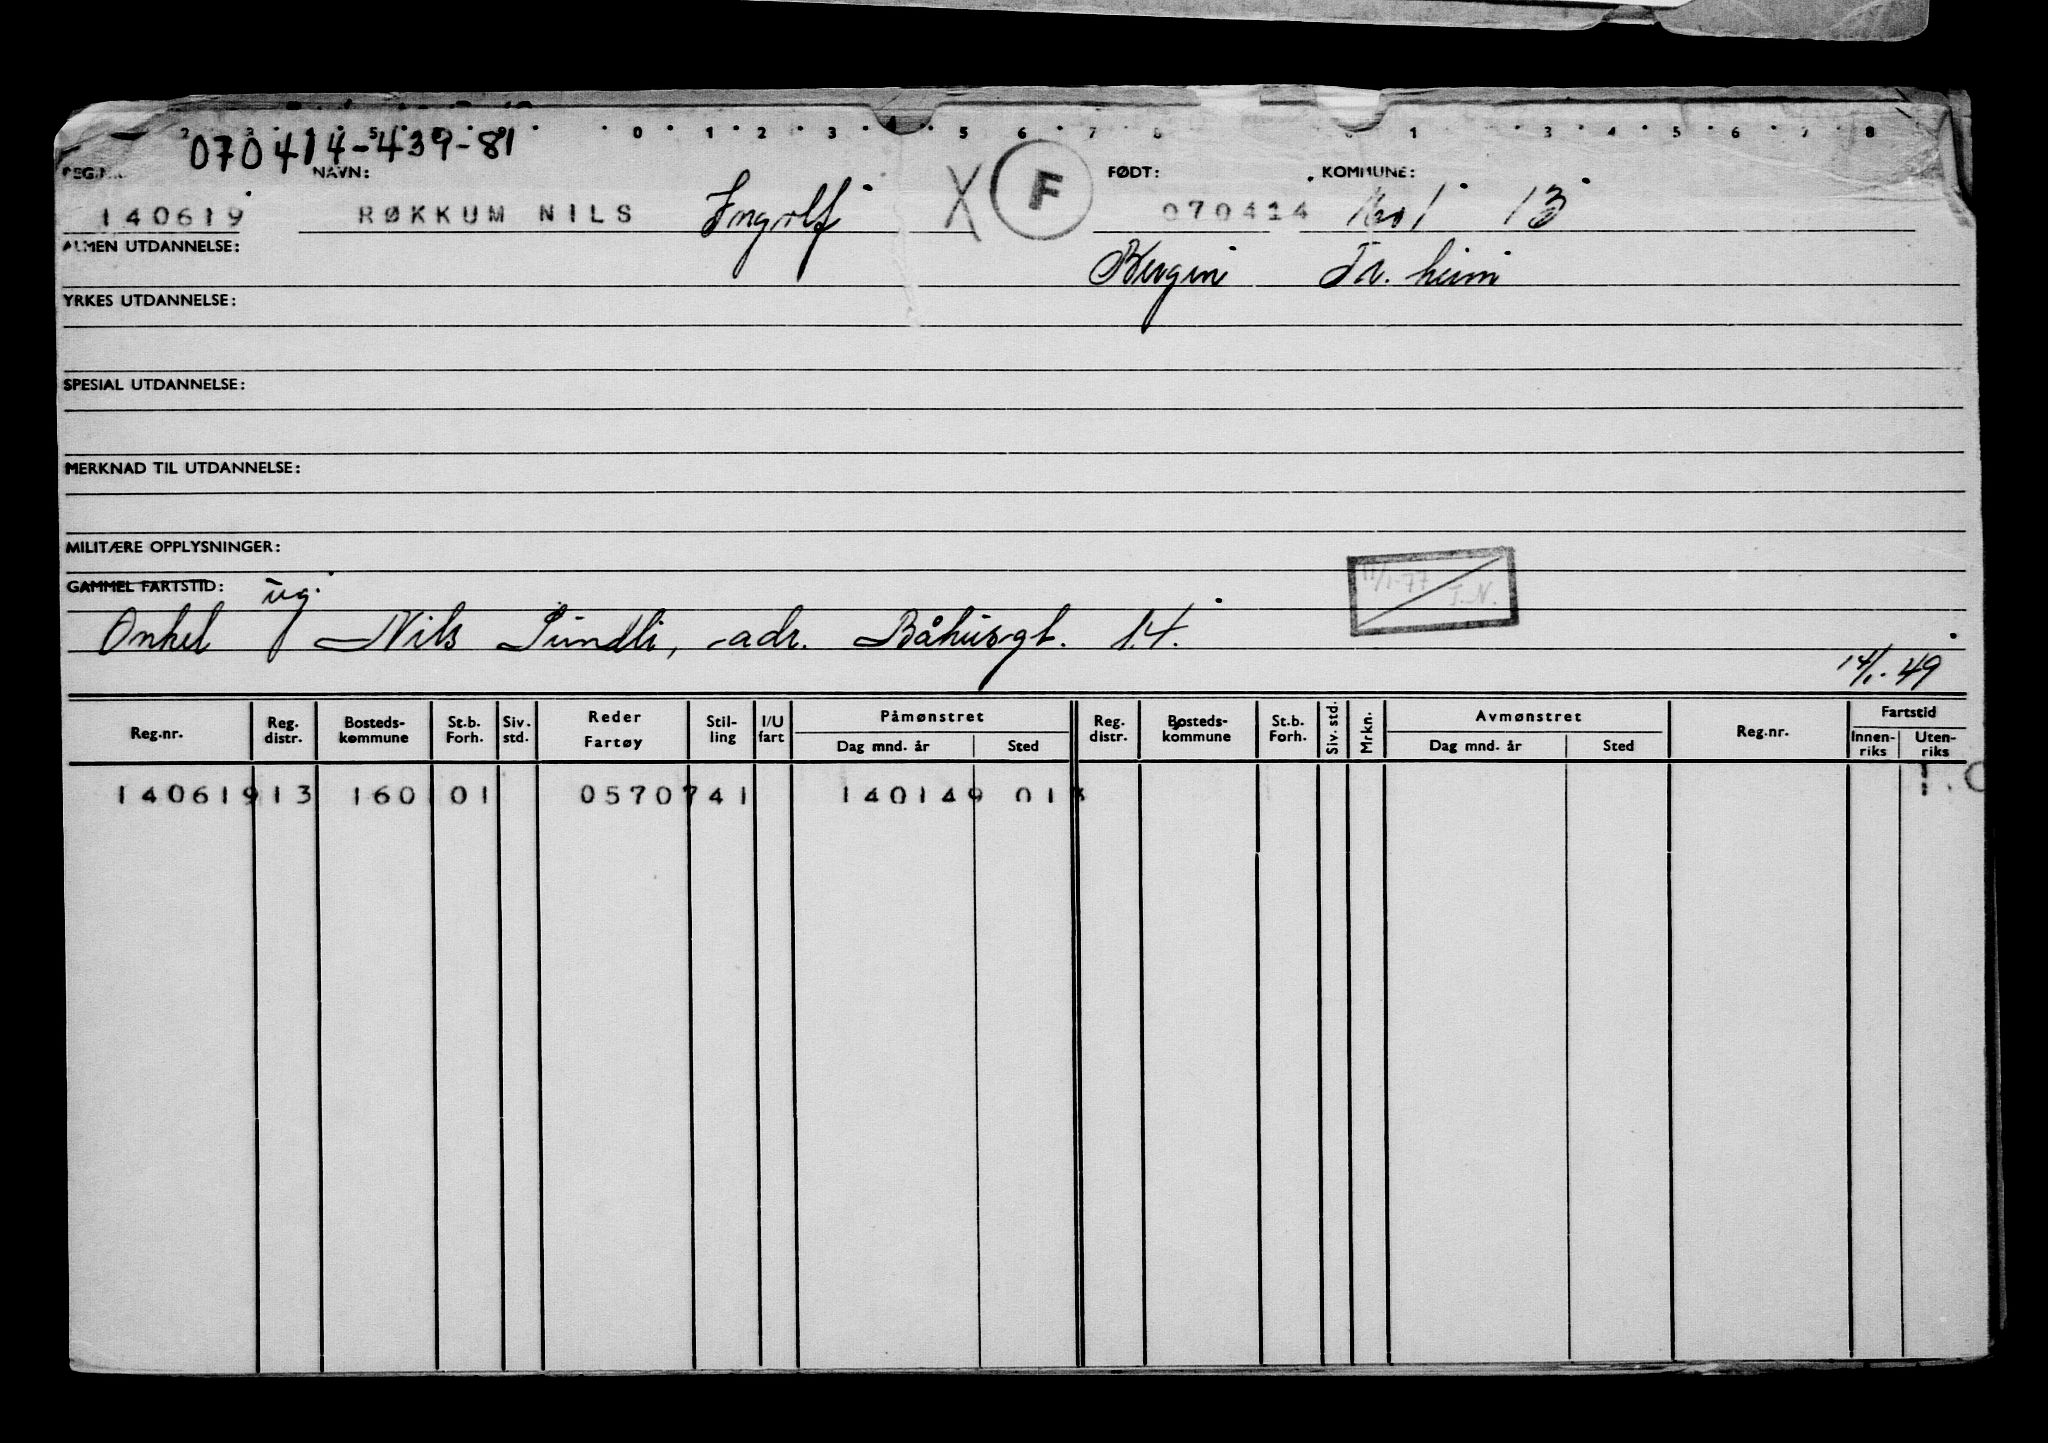 070414-439-81
0 1 2 3 4 5 6 7 8 1 3 4 5 6 7 8
REG.NR. NAVN: FØDT: KOMMUNE:
140619 RØKKUM NILS Ingolf X F 070414 1601 13
ALMEN UTDANNELSE: Bergen Tr. heim
YRKES UTDANNELSE:
SPESIAL UTDANNELSE:
MERKNAD TIL UTDANNELSE:
MILITÆRE OPPLYSNINGER:
GAMMEL FARTSTID: ug. 11/1-77 I.N.
Onkel Nils Sundli, adr. Båhusgt. 14.
14/1-49
Reg.nr. Reg. distr. Bosteds-kommune St.b. Forh. Siv. std. Reder Fartøy Stil-ling I/U fart Påmønstret Dag mnd. år Sted Reg. distr. Bosteds-kommune St.b. Forh. Siv. std. Mrkn. Avmønstret Dag mnd. år Sted Reg.nr. Fartstid Innen-riks Uten-riks
140619 13 1601 01 0570 741 140149 013